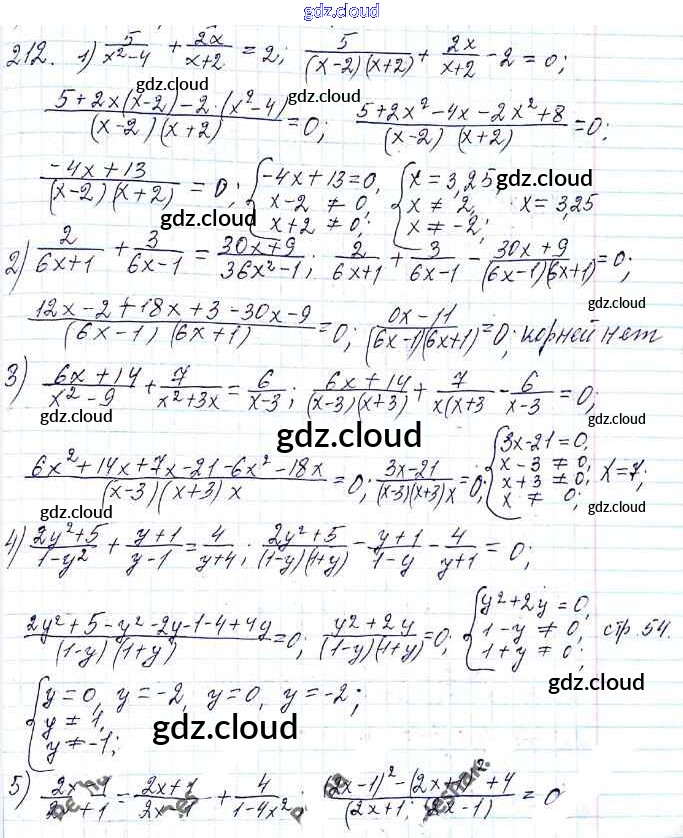 gdz.cloud
gdz.cloud
212. 1) 5/(x²-4) + 2x/(x+2) = 2; 5/((x-2)(x+2)) + 2x/(x+2) - 2 = 0;
gdz.cloud gdz.cloud
(5+2x(x-2)-2·(x²-4))/((x-2)(x+2)) = 0; (5+2x²-4x-2x²+8)/((x-2)(x+2)) = 0;
(-4x+13)/((x-2)(x+2)) = 0; { -4x+13=0, x-2≠0, x+2≠0; { x=3,25, x≠2, x≠-2; x=3,25
gdz.cloud gdz.cloud
2) 2/(6x+1) + 3/(6x-1) = (30x+9)/(36x²-1); 2/(6x+1) + 3/(6x-1) - (30x+9)/((6x-1)(6x+1)) = 0;
(12x-2+18x+3-30x-9)/((6x-1)(6x+1)) = 0; (0x-11)/((6x-1)(6x+1)) = 0; корней нет
3) (6x+14)/(x²-9) + 7/(x²+3x) = 6/(x-3); (6x+14)/((x-3)(x+3)) + 7/(x(x+3) - 6/(x-3) = 0;
gdz.cloud
(6x²+14x+7x-21-6x²-18x)/((x-3)(x+3)x) = 0; (3x-21)/((x-3)(x+3)x) = 0; { 3x-21=0, x-3≠0, x+3≠0, x≠0; x=7;
gdz.cloud gdz.cloud
4) (2y²+5)/(1-y²) + (y+1)/(y-1) = 4/(y+4); (2y²+5)/((1-y)(1+y)) - (y+1)/(1-y) - 4/(y+1) = 0;
(2y²+5-y²-2y-1-4+4y)/((1-y)(1+y)) = 0; (y²+2y)/((1-y)(1+y)) = 0; { y²+2y=0, 1-y≠0, 1+y≠0; стр.54.
gdz.cloud
{ y=0, y=-2, y≠1, y≠-1; y=0, y=-2;
gdz.cloud
5) = (2x+1)/ + 4/(1-4x²); = 0